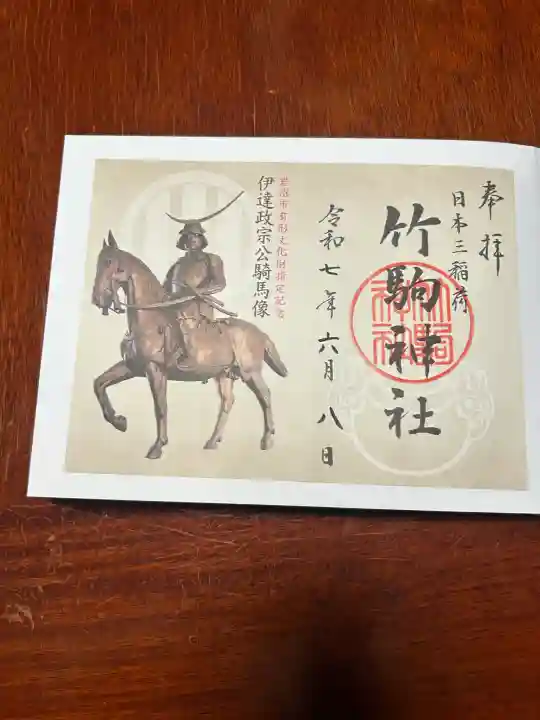 奉拝
日本三稲荷
竹駒神社
令和七年六月八日
岩沼市有形文化財指定記念
伊達政宗公騎馬像